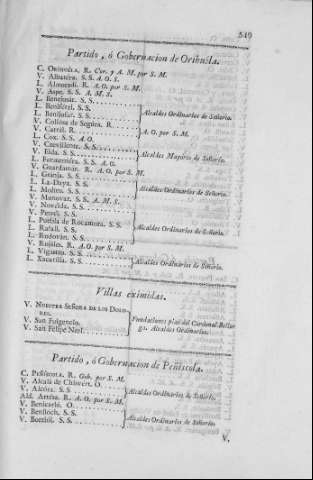 549
Partido, ó Gobernacion de Orihuela.
C. ORIHUELA, R. Cor. y A. M. por S. M.
V. Albatéra. S. S. A. O. S.
L. Almoradí. R. A. O. por S. M.
V. Aspe. S. S. A. M. S.
L. Benejuzar. S. S.
L. S. S.
L. Benijófar. S. S. Alcaldes Ordinarios de Señorío.
V. Callosa de Segura. R.
V. Catral. R. A. O. por S. M.
L. Cox. S. S. A. O.
V. Crevillente. S. S.
V. Elda. S. S. Alcaldes Mayores de Señorío.
L. Formentéra. S. S. A. O.
V. Guardamar. R. A. O. por S. M.
L. Granja. S. S.
L. La-Daya. S. S.
L. Molins. S. S. Alcaldes Ordinarios de Señorío.
V. Manovar. S. S. A. M. S.
V. Novelda. S. S.
V. Petrél. S. S.
L. Puebla de Rocamora. S. S.
L. Rafall. S. S. Alcaldes Ordinarios de Señorío.
L. Redován. S. S.
V. Rojáles. R. A. O. por S. M.
L. S. S.
L. Xacarilla. S. S. Alcaldes Ordinarios de Señorío.
Villas eximidas.
V. NUESTRA SEÑORA DE LOS DOLO-
RES.
V. San Fulgencio. Fundaciones pias del Cardenal Bellu-
V. San Felipe Neri. ga. Alcaldes Ordinarios.
Partido, ó Gobernacion de Peñiscola.
C. PEÑÍSCOLA. R. Gob. por S. M.
V. Alcalá de Chivért. O.
V. S. S. Alcaldes Ordinarios de Señorío.
Ald. R. A. O. por S. M.
V. Benicarló. O.
V. S. S. Alcaldes Ordinarios de Señorío.
V. S. S.
V.